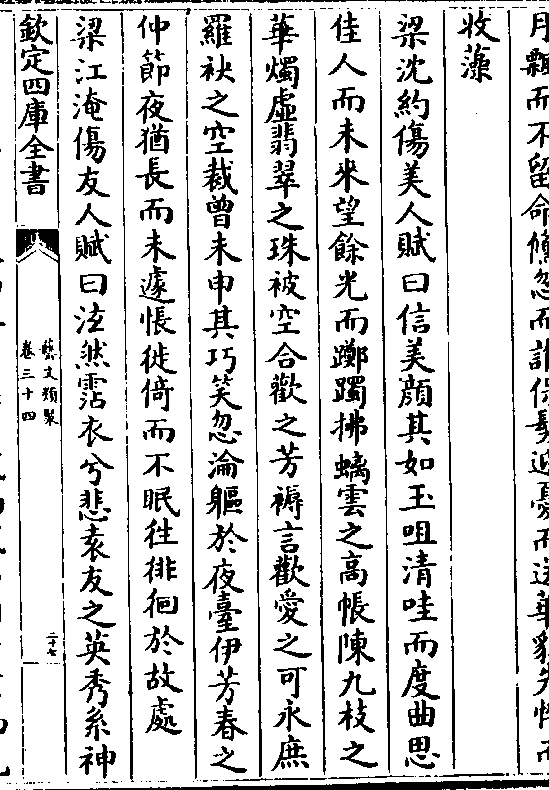 月飄而不留命儵忽而誰保髮迎憂而送華貌先悴而
收藻
梁沈約傷美人賦曰信美顔其如玉咀清哇而度曲思
佳人而未来望餘光而躑躅拂螭雲之高帳陳九枝之
華燭虛翡翠之珠被空合歡之芳褥言歡愛之可永庶
羅袂之空裁曾未申其巧笑忽淪軀於夜臺伊芳春之
仲節夜猶長而未遽悵徙倚而不眠徃徘徊於故處
梁江淹傷友人賦曰泫然霑衣兮悲袁友之英秀系神
欽定四庫全書
藝文類聚
卷三十四
二十七